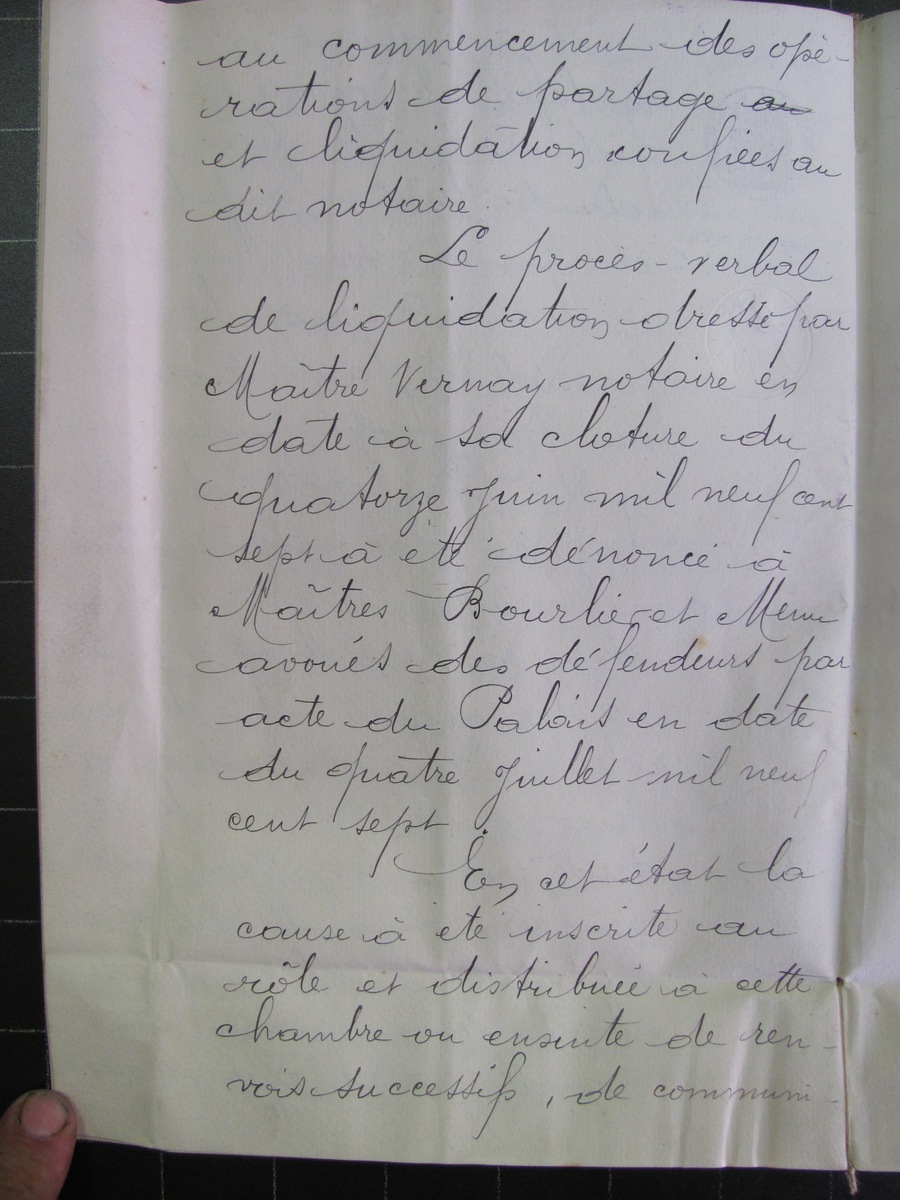 au commencement des opé-
rations de partage au
et liquidation confiées au
dit notaire.
Le procès-verbal
de liquidation dressé par
Maître Vernay notaire en
date à sa cloture du
quatorze Juin mil neuf cent
sept à été dénoncé à
Maîtres Bourlier et Menu
avoués des défendeurs par
acte du Palais en date
du quatre Juillet mil neuf
cent sept.
En cet état la
cause à été inscrite au
rôle et distribuée à cette
chambre ou ensuite de ren-
vois successifs, de communi-